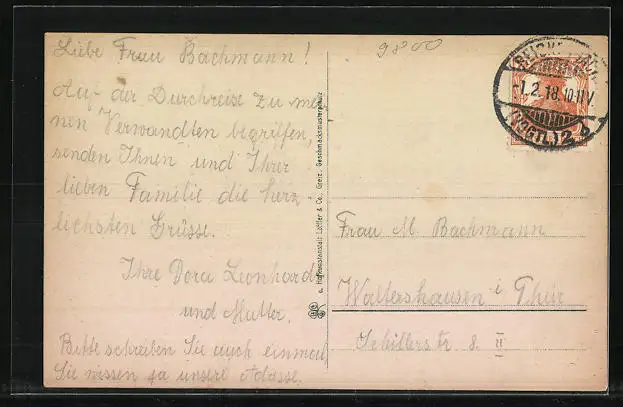 Liebe Frau Bachmann!
Auf der Durchreise zu mei-
nen Verwandten begriffen,
senden Ihnen und Ihrer
lieben Familie die herz-
lichsten Grüsse.
Ihre Dora Leonhardt
und Mutter.
Bitte schreiben Sie auch einmal,
Sie wissen ja unsere Adresse.
9800
-1.2.18.10-11V.
(VOGTL.) 2 b
Löffler & Co., Greiz. Geschmacksmusterschutz
Frau M. Bachmann
Waltershausen i Thür
Schillerstr 8. II